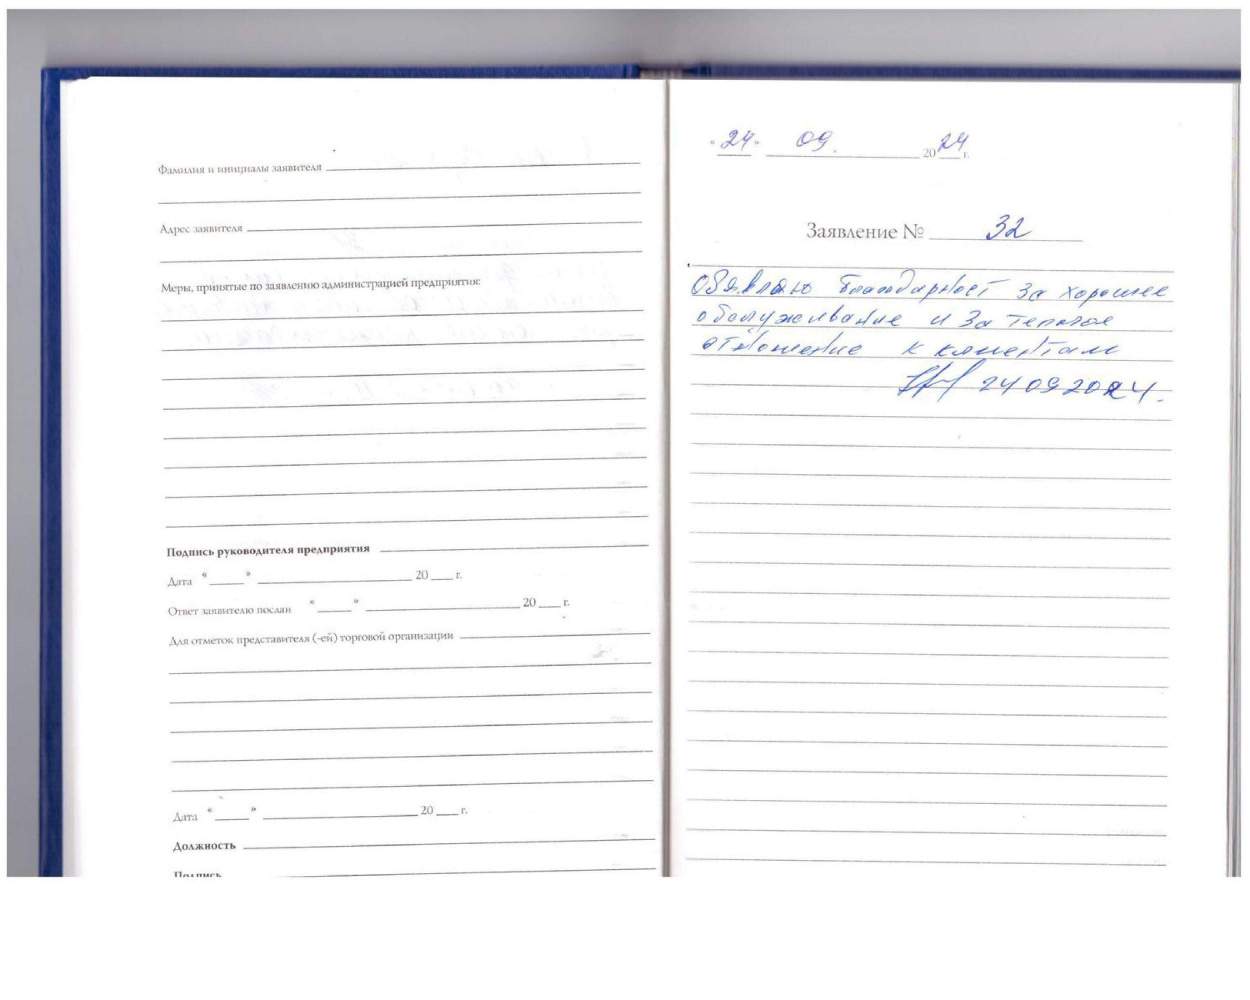 Фамилия и инициалы заявителя
Адрес заявителя
Меры, принятые по заявлению администрацией предприятия:
Подпись руководителя предприятия
Дата “ ” 20 г.
Ответ заявителю послан “ ” 20 г.
Для отметок представителя (-ей) торговой организации
Дата “ ” 20 г.
Должность
Подпись
“24” 09. 2024 г.
Заявление № 32
Обявляю благодарност за хорошее
обслуживание и за теплое
отношение к клиентам
24 09 2024.